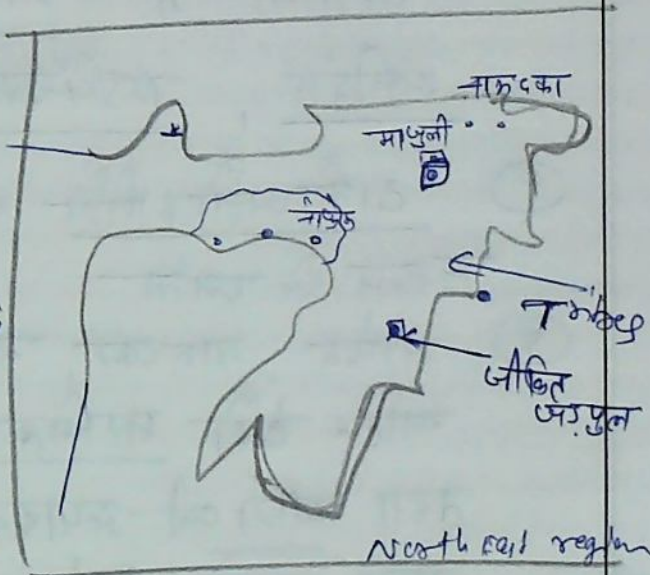 नामदफा
माजुली
Tribes
जीवित
जड़ पुल
North East region